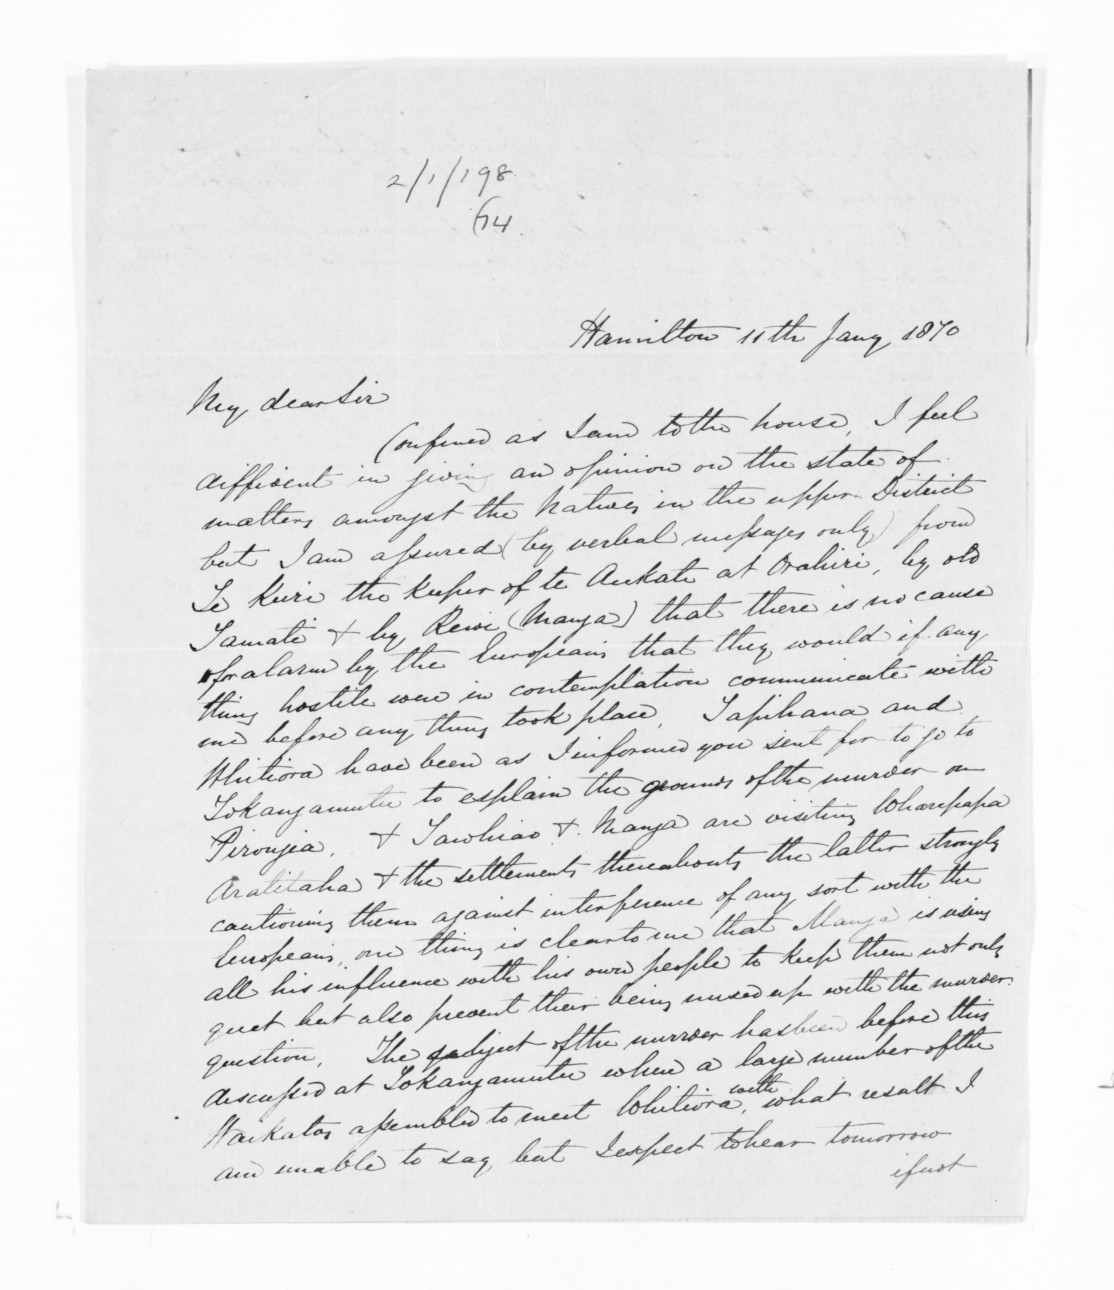 2/1/198
/74.
Hamilton 11th Jany 1870
My dear Sir
Confined as I am to the house, I feel
diffident in giving an opinion on the state of
matters amongst the Natives in the upper District
but I am assured (by verbal messages only) from
Te Kuri the keeper of te Aukate at Orahiri, by old
Tamati & by Rewi (Manga) that there is no cause
for alarm by the Europeans that they would if any
thing hostile were in contemplation communicate with
me before any thing took place, Tapihana and
Whitiora have been as I informed you sent for to go to
Tokangamutu to explain the grounds of the murder on
Pirongia, & Tawhiao & Manga are visiting Wharepapa
Aratitaha & the settlements thereabouts the latter strongly
cautioning them against interference of any sort with the
Europeans, one thing is clear to me that Manga is using
all his influence with his own people to keep them not only
quiet but also prevent their being mixed up with the murder
question, The subject of the murder has been before this
discussed at Tokangamutu where a large number of the
Waikatos assembled to meet Whitiora, with what result I
am unable to say but I expect to hear tomorrow
if not